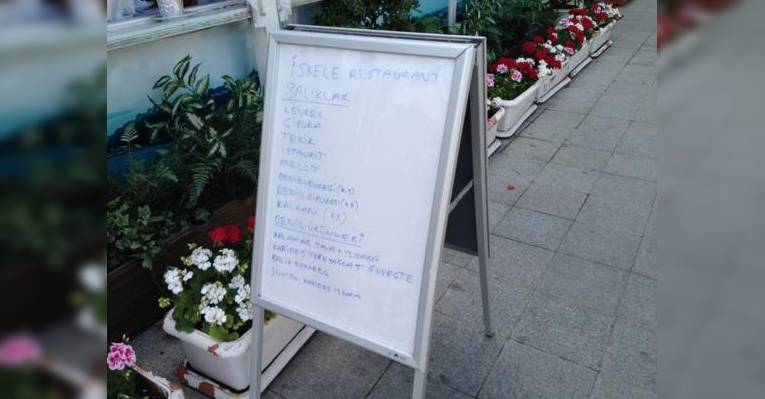 İSKELE RESTAURANT
BALIKLAR
LEVREK
ÇİPURA
TEKİR
İSTAVRİT
MEZGİT
DENİZ LEVREĞİ (KG)
DENİZ ÇİPURASI (KG)
KALKAN (KG)
DENİZ ÜRÜNLERİ
KALAMAR TAVA + IZGARA
KARİDES TEREYAĞLI + GÜVEÇTE
BALIK KOKOREÇ
JUMBO KARİDES IZGARA